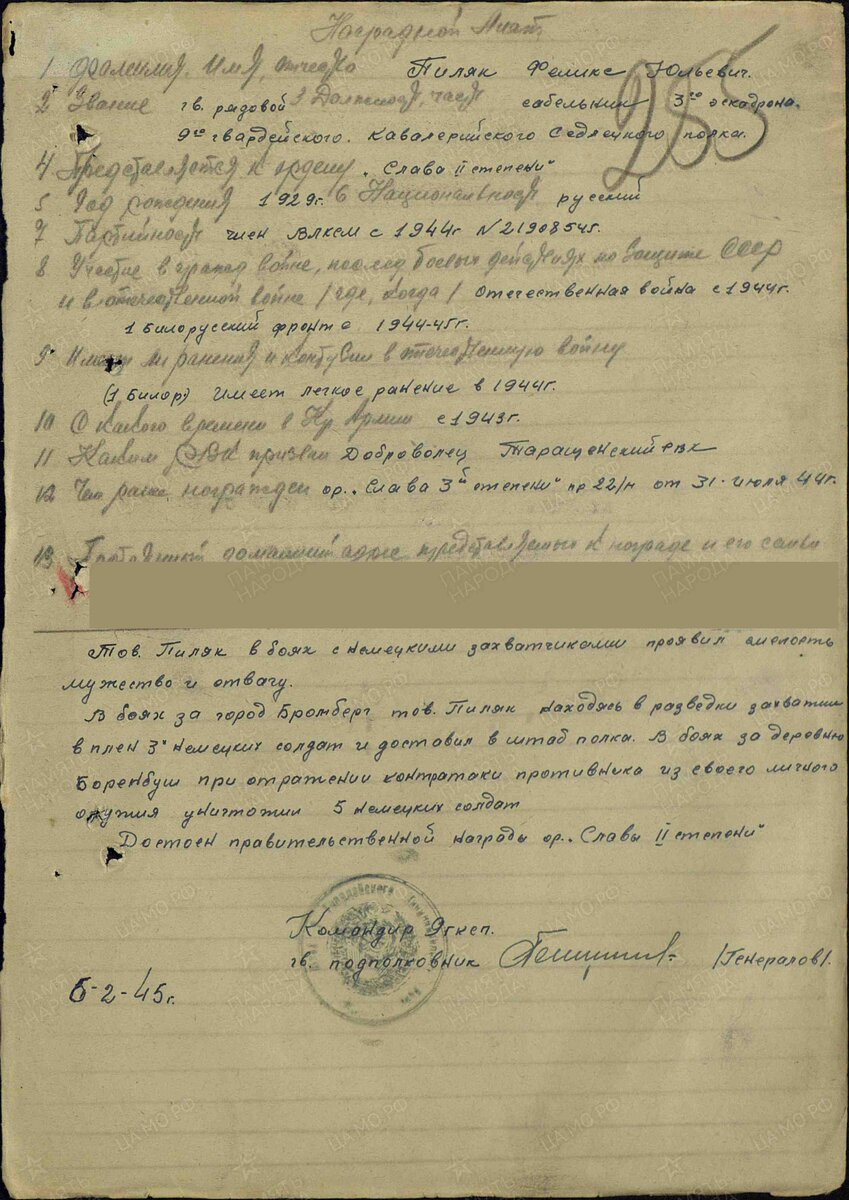 Наградной Лист
255
1 Фамилия, Имя, отчество Пиляк Феликс Юльевич.
2 Звание гв. рядовой 3 Должность, часть сабельник 3го эскадрона.
9го гвардейского. Кавалерийского Седлецкого полка.
4 Представляется к ордену „Слава II степени"
5 Год рождения 1929г. 6 Национальность русский
7 Партийность член ВЛКСМ с 1944г N21908545г.
8 Участие в гражд войне, послед боевых действиях по защите СССР
и в отечественной войне /где, когда/ Отечественная война с 1944г.
1 Белорусский фронт с 1944-45г.
9 Имеет ли ранения и контузии в отечественную войну
(1 Билор) Имеет легкое ранение в 1944г.
10 С какого времени в Кр Армии с 1943г.
11 Каким РВК призван Доброволец Таращенский рвк
12 Чем ранее награжден ор. „Слава 3й степени" пр 22/н от 31-июля 44г.
13 домашний адрес представляемого к награде и его семьи
Тов. Пиляк в боях с немецкими захватчиками проявил смелость
мужество и отвагу.
В боях за город Бромберг тов. Пиляк находясь в разведки захватил
в плен 3х немецких солдат и доставил в штаб полка. В боях за деревню
Боренбуш при отражении контратаки противника из своего личного
оружия уничтожил 5 немецких солдат
Достоен правительственной награды ор. „Славы II степени"
Командир 9гксп.
гв. подполковник /Генералов/.
5-2-45г.